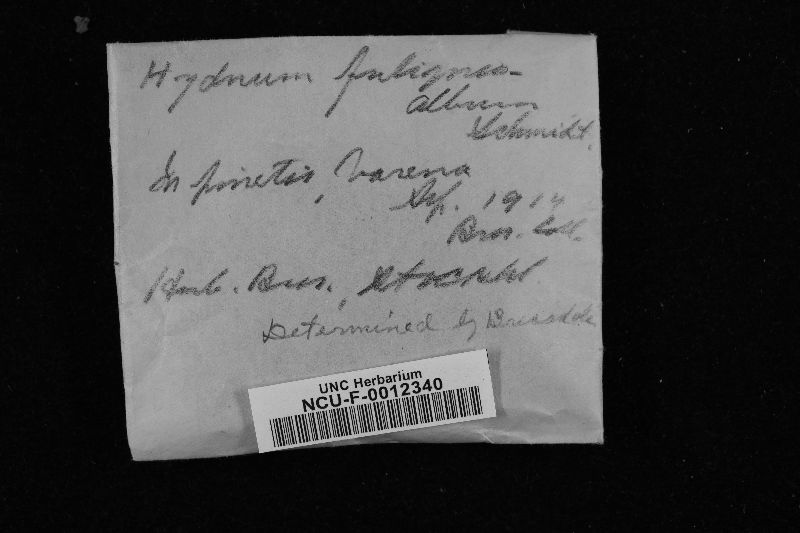 Hydnum fuligneo-
album
Schmidt.
In pinetis, Varena
Sep. 1914
Bres. Coll.
Herb. Bres., Stockh
Determined by Bresadola
UNC Herbarium
NCU-F-0012340